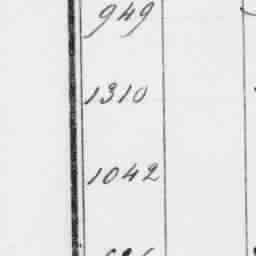 949
1310
1042